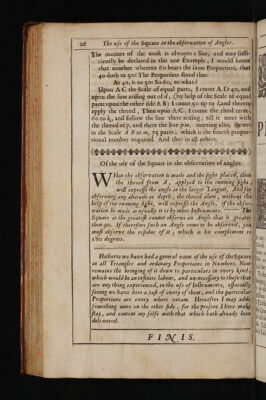 26 The use of the Square in the observation of Angles.
The manner of the work is always a like, and may suffi-
ciently be declared in this one Example. I would know
that number whereto 60 bears the same Proportion, that
40 doth to 50: The Proportion stand thus
As 40, is to 50: So 60, to what?
Upon A C the Scale of equal parts, I count A D 40, and
upon the line arising out of d, (by help of the Scale of equal
parts upon the other side A B) I count 50 up to
apply the thread, Then upon A C, I count the third term
60 to and follow the line there arising, till it meet with
the thread at and there the line meeting also, shewes
in the Scale A B at m, 75 parts, which is the fourth propor-
tional number required. And thus in all others.
Of the use of the Square in the observation of angles.
WHen the observation is made and the sight placed, then
the thread from A, applyed to the running sight,
will expresse the angle in the larger Tangent, And for
observing any altitude or depth, the thread alone, without the
help of the running sight, will expresse the Angle, if the obser-
vation be made as usually it is by other Instruments. The
Square is the greatest cannot observe an Angle that is greater
then 90. If therefore such an Angle come to be observed, you
must observe the residue of it, which is his complement to
180 degrees.
Hitherto we have had a general view of the use of the Square
in all Triangles and ordinary Proportions in Numbers. Now
remains the bringing of it down to particulars in every kind,
which would be an infinite labour, and unnecessary to those that
are any thing experienced, in the use of Instruments, especially
seeing we have here a tast of every of them, and the particular
Proportions are every where extant. Hereafter I may adde
something more on the other side, for the present I here make
stay, and content my selfe with that which hath already been
delivered.
FINIS.
P